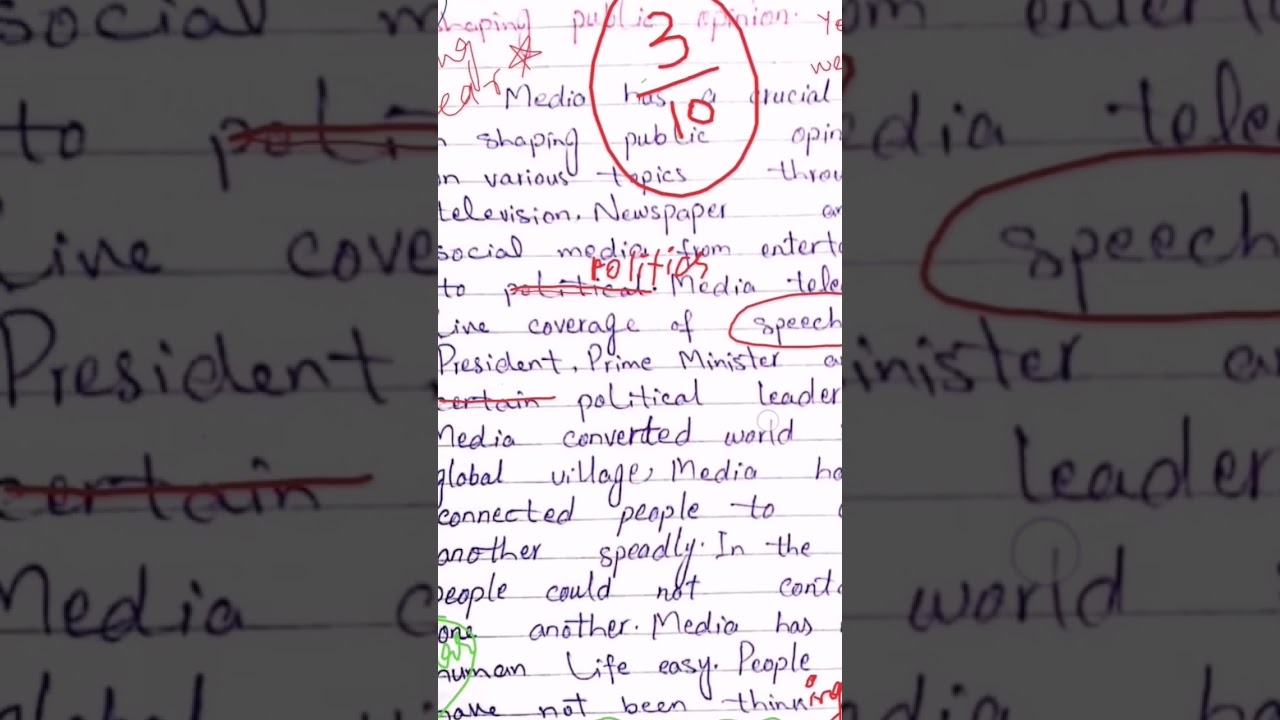 shaping public opinion.
3/10
Media has a crucial
shaping public opin
in various topics throu
television. Newspaper an
social media from enterta
politics
to political. Media tele
Live coverage of speech
President, Prime Minister a
certain political leader
Media converted world
global village, Media ha
connected people to
another speadly. In the
people could not conta
one another. Media has
human Life easy. People
have not been thinning